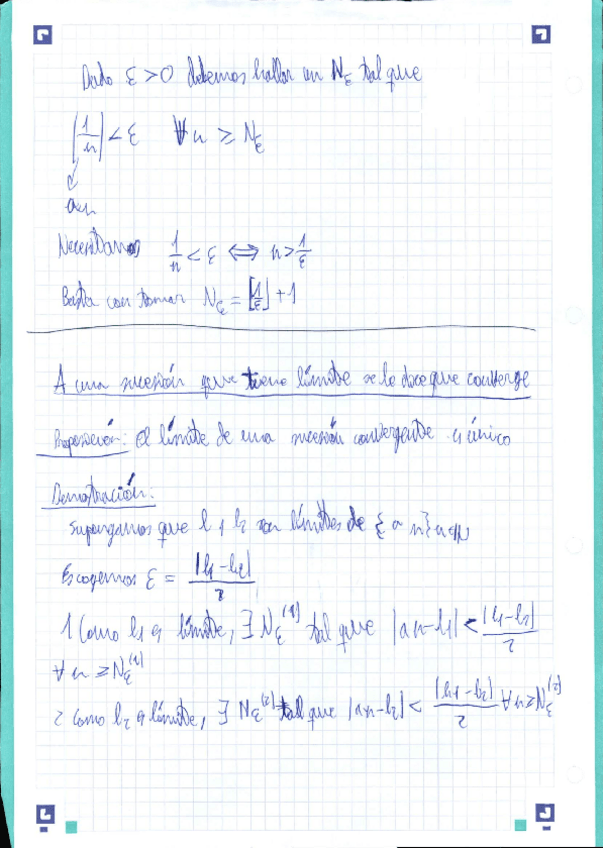 Dado ε > 0 debemos hallar un N_ε tal que
|1/n| < ε ∀n ≥ N_ε
an
Necesitamos 1/n < ε ⟺ n > 1/ε
Basta con tomar N_ε = [1/ε] + 1
A una sucesión que tiene límite se le dice que converge
Proposición: El límite de una sucesión convergente es único
Demostración:
Supongamos que l1 l2 son límites de {an}n∈N
Escogemos ε = |l1-l2|/2
1 Como l1 es límite, ∃ N_ε^(1) tal que |an-l1| < |l1-l2|/2
∀n ≥ N_ε^(1)
2 Como l2 es límite, ∃ N_ε^(2) tal que |an-l2| < |l1-l2|/2 ∀n ≥ N_ε^(2)